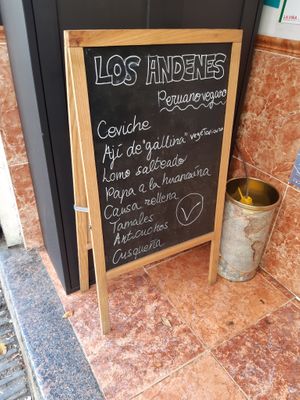 LOS ANDENES
Peruanovegano
Ceviche
Ají de "gallina" vegetariano
Lomo salteado
Papa a la huancaína
Causa rellena
Tamales
Anticuchos
Cusqueña
V